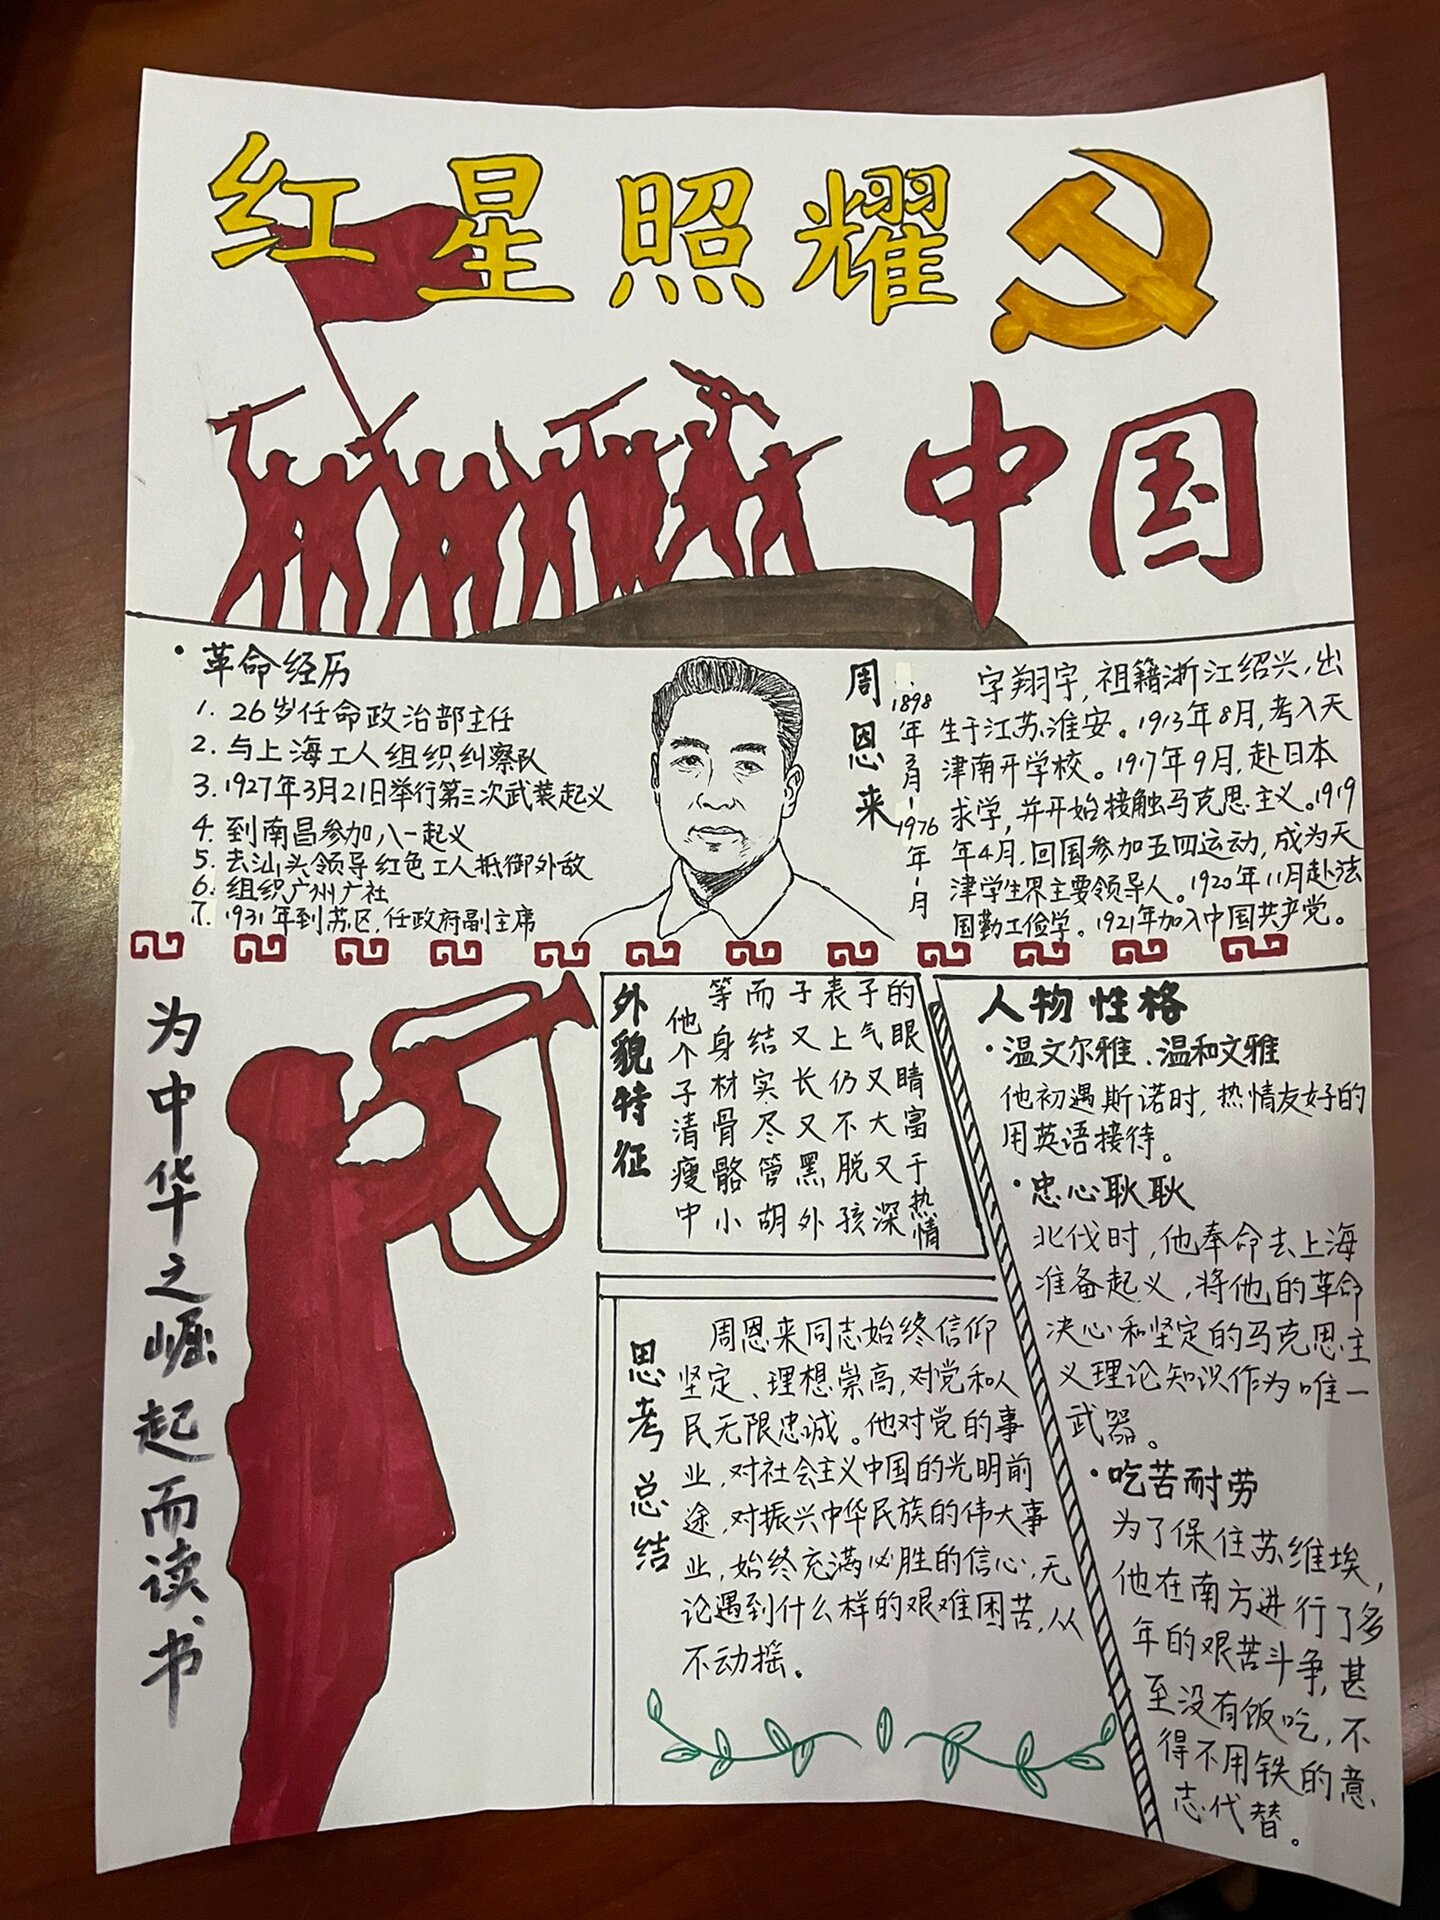 红星照耀
中国
·革命经历
1. 26岁任命政治部主任
2. 与上海工人组织纠察队
3. 1927年3月21日举行第三次武装起义
4. 到南昌参加八一起义
5. 去汕头领导红色工人抵御外敌
6. 组织广州广社
7. 1931年到苏区,任政府副主席
周恩来
1898年3月-1976年1月
字翔宇,祖籍浙江绍兴,出
生于江苏淮安。1913年8月,考入天
津南开学校。1917年9月,赴日本
求学,并开始接触马克思主义。1919
年4月,回国参加五四运动,成为天
津学生界主要领导人。1920年11月赴法
国勤工俭学。1921年加入中国共产党。
为中华之崛起而读书
外貌特征
他个子清瘦中
等身材骨骼小
而结实尽管胡
子又长又黑外
表上仍不脱孩
子气又大又深
的眼睛富于热情
人物性格
·温文尔雅、温和文雅
他初遇斯诺时,热情友好的
用英语接待。
·忠心耿耿
北伐时,他奉命去上海
准备起义,将他的革命
决心和坚定的马克思主
义理论知识作为唯一
武器。
·吃苦耐劳
为了保住苏维埃,
他在南方进行了多
年的艰苦斗争,甚
至没有饭吃,不
得不用铁的意
志代替。
思考总结
周恩来同志始终信仰
坚定、理想崇高,对党和人
民无限忠诚。他对党的事
业,对社会主义中国的光明前
途,对振兴中华民族的伟大事
业,始终充满必胜的信心,无
论遇到什么样的艰难困苦,从
不动摇。